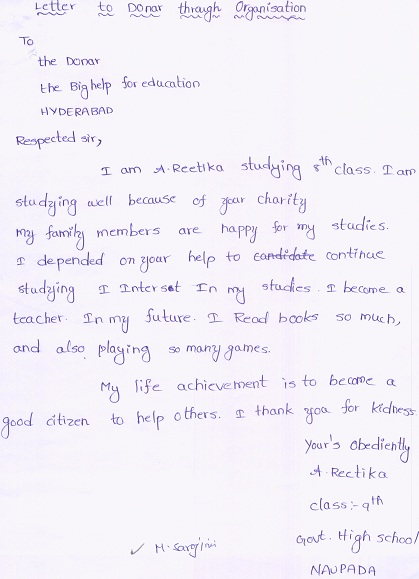 Letter to Donar through Organisation
To
the Donar
the Bighelp for education
HYDERABAD
Respected sir,
I am A.Reetika studying 8th class. I am
studying well because of your charity
my family members are happy for my studies.
I depended on your help to candidate continue
studying I Interset In my studies. I become a
teacher. In my future. I Read books so much,
and also playing so many games.
My life achievement is to become a
good citizen to help others. I thank you for kidness.
your's Obediently
A.Reetika
class:- 9th
Govt. High school
NAUPADA
✓ M. Sarojini